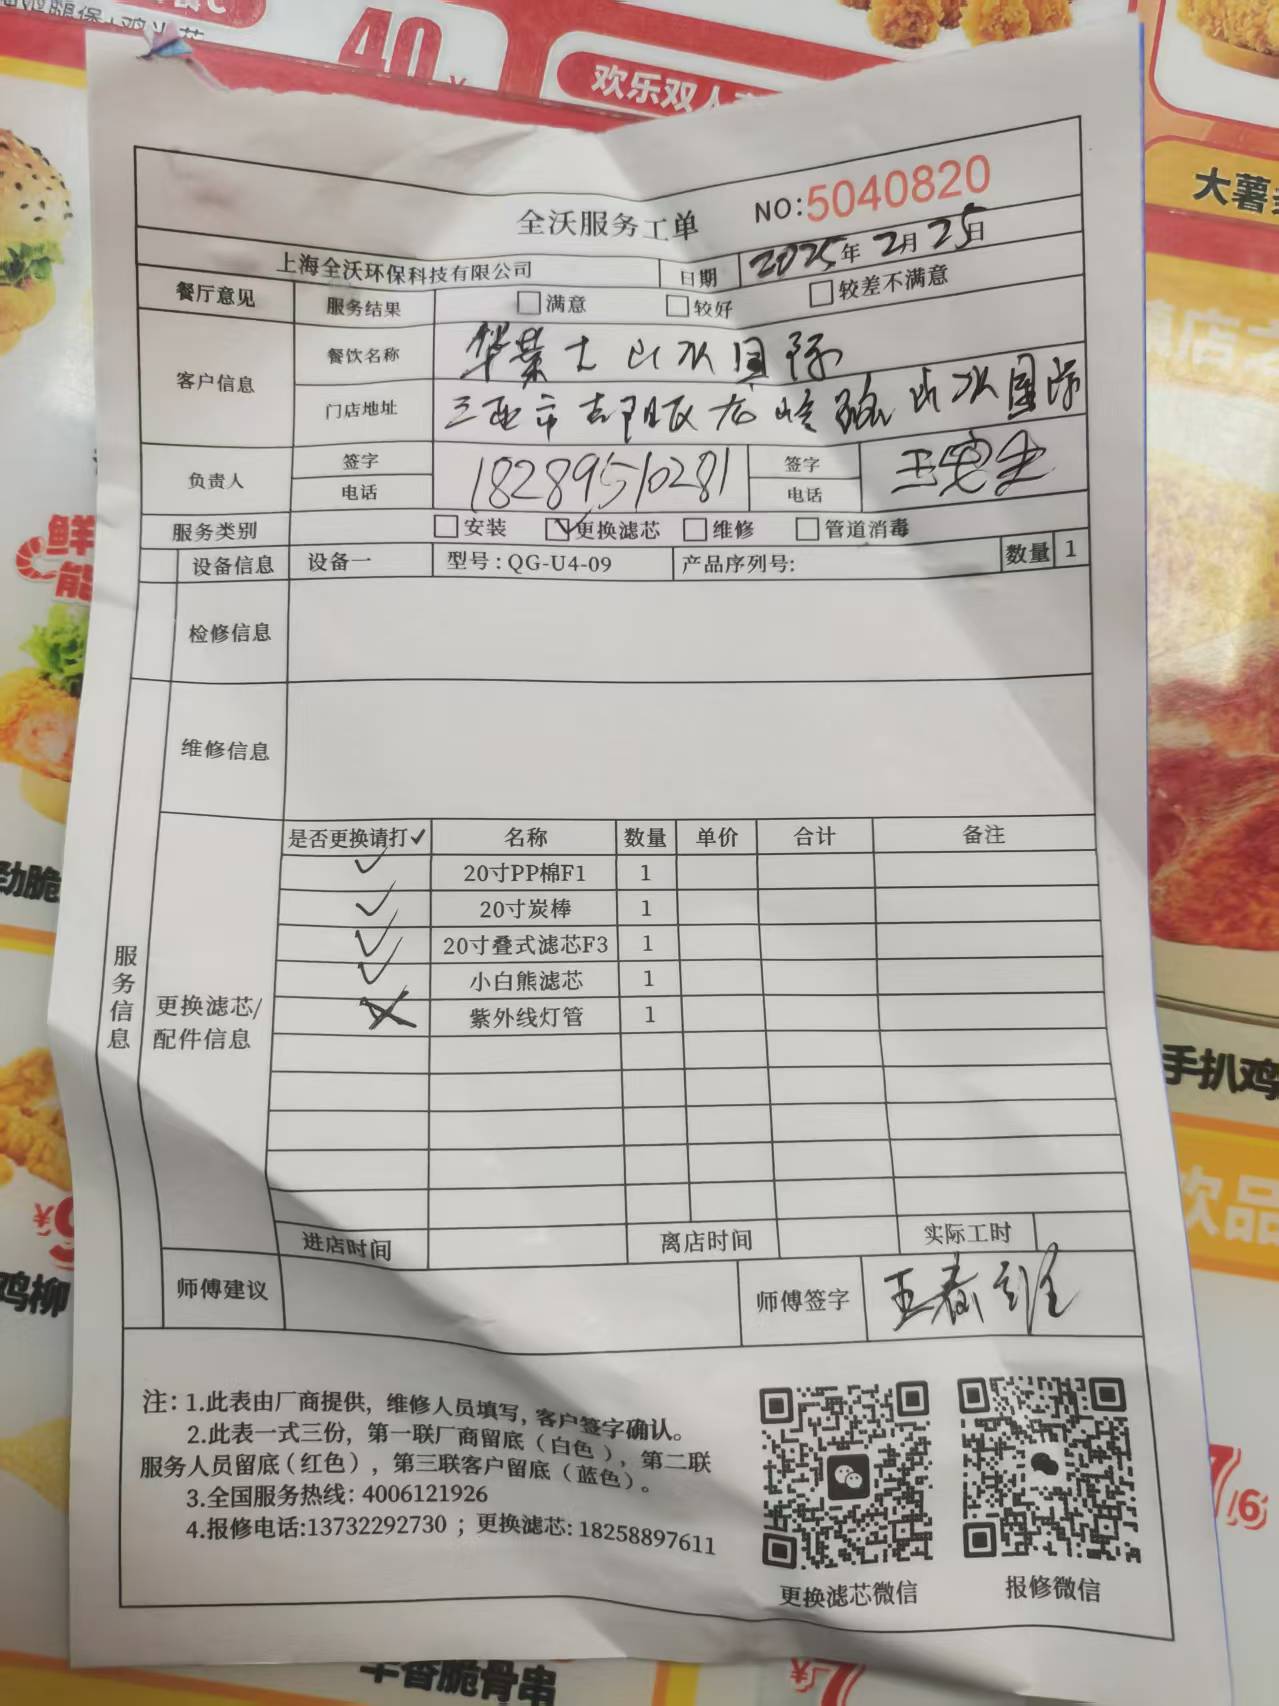 40
欢乐双人
大薯
NO:5040820
全沃服务工单
上海全沃环保科技有限公司 日期 2025年2月25日
餐厅意见 服务结果 □满意 □较好 □较差不满意
客户信息 餐饮名称 华莱士山水国际
门店地址 三亚市吉阳区 山水国际
负责人 签字 电话 18289510281 签字 电话
服务类别 □安装 ☑更换滤芯 □维修 □管道消毒
设备信息 设备一 型号:QG-U4-09 产品序列号: 数量 1
检修信息
维修信息
服务信息
更换滤芯/配件信息
是否更换请打✓ 名称 数量 单价 合计 备注
✓ 20寸PP棉F1 1
✓ 20寸炭棒 1
✓ 20寸叠式滤芯F3 1
✓ 小白熊滤芯 1
✗ 紫外线灯管 1
进店时间 离店时间 实际工时
师傅建议 师傅签字 王春雄
注:1.此表由厂商提供,维修人员填写,客户签字确认。
2.此表一式三份,第一联厂商留底(白色),第二联
服务人员留底(红色),第三联客户留底(蓝色)。
3.全国服务热线:4006121926
4.报修电话:13732292730 ; 更换滤芯:18258897611
更换滤芯微信 报修微信
鲜
能
劲脆
鸡柳
手扒鸡
饮品
脆骨串
¥7